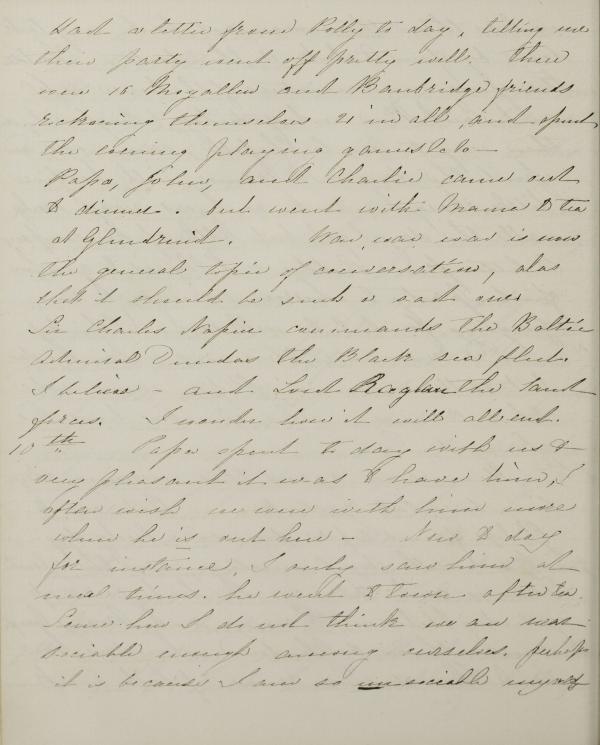 Had a letter from Polly to day, telling me
their party went off pretty well. There
were 16 Moyallen and Banbridge friends
reckoning themselves 21 in all, and spent
the evening playing games &c &c—
Papa, John, and Charlie came out
to dinner. but went with Mama to tea
at Glendruid. War, war war is now
the general topic of conversation, alas
that it should be such a sad one.
Sir Charles Napier commands the Baltic
Admiral Dundas the Black sea fleet.
I believe - and Lord Raglan the land
forces. I wonder how it will all end.
10th Papa spent to day with us &
very pleasant it was to have him, I
often wish we were with him more
when he is out here - Now to day
for instance, I only saw him at
meal times. he went to town after tea.
Some how I do not think we are near
sociable enough among ourselves. perhaps
it is because I am so unsociable myself